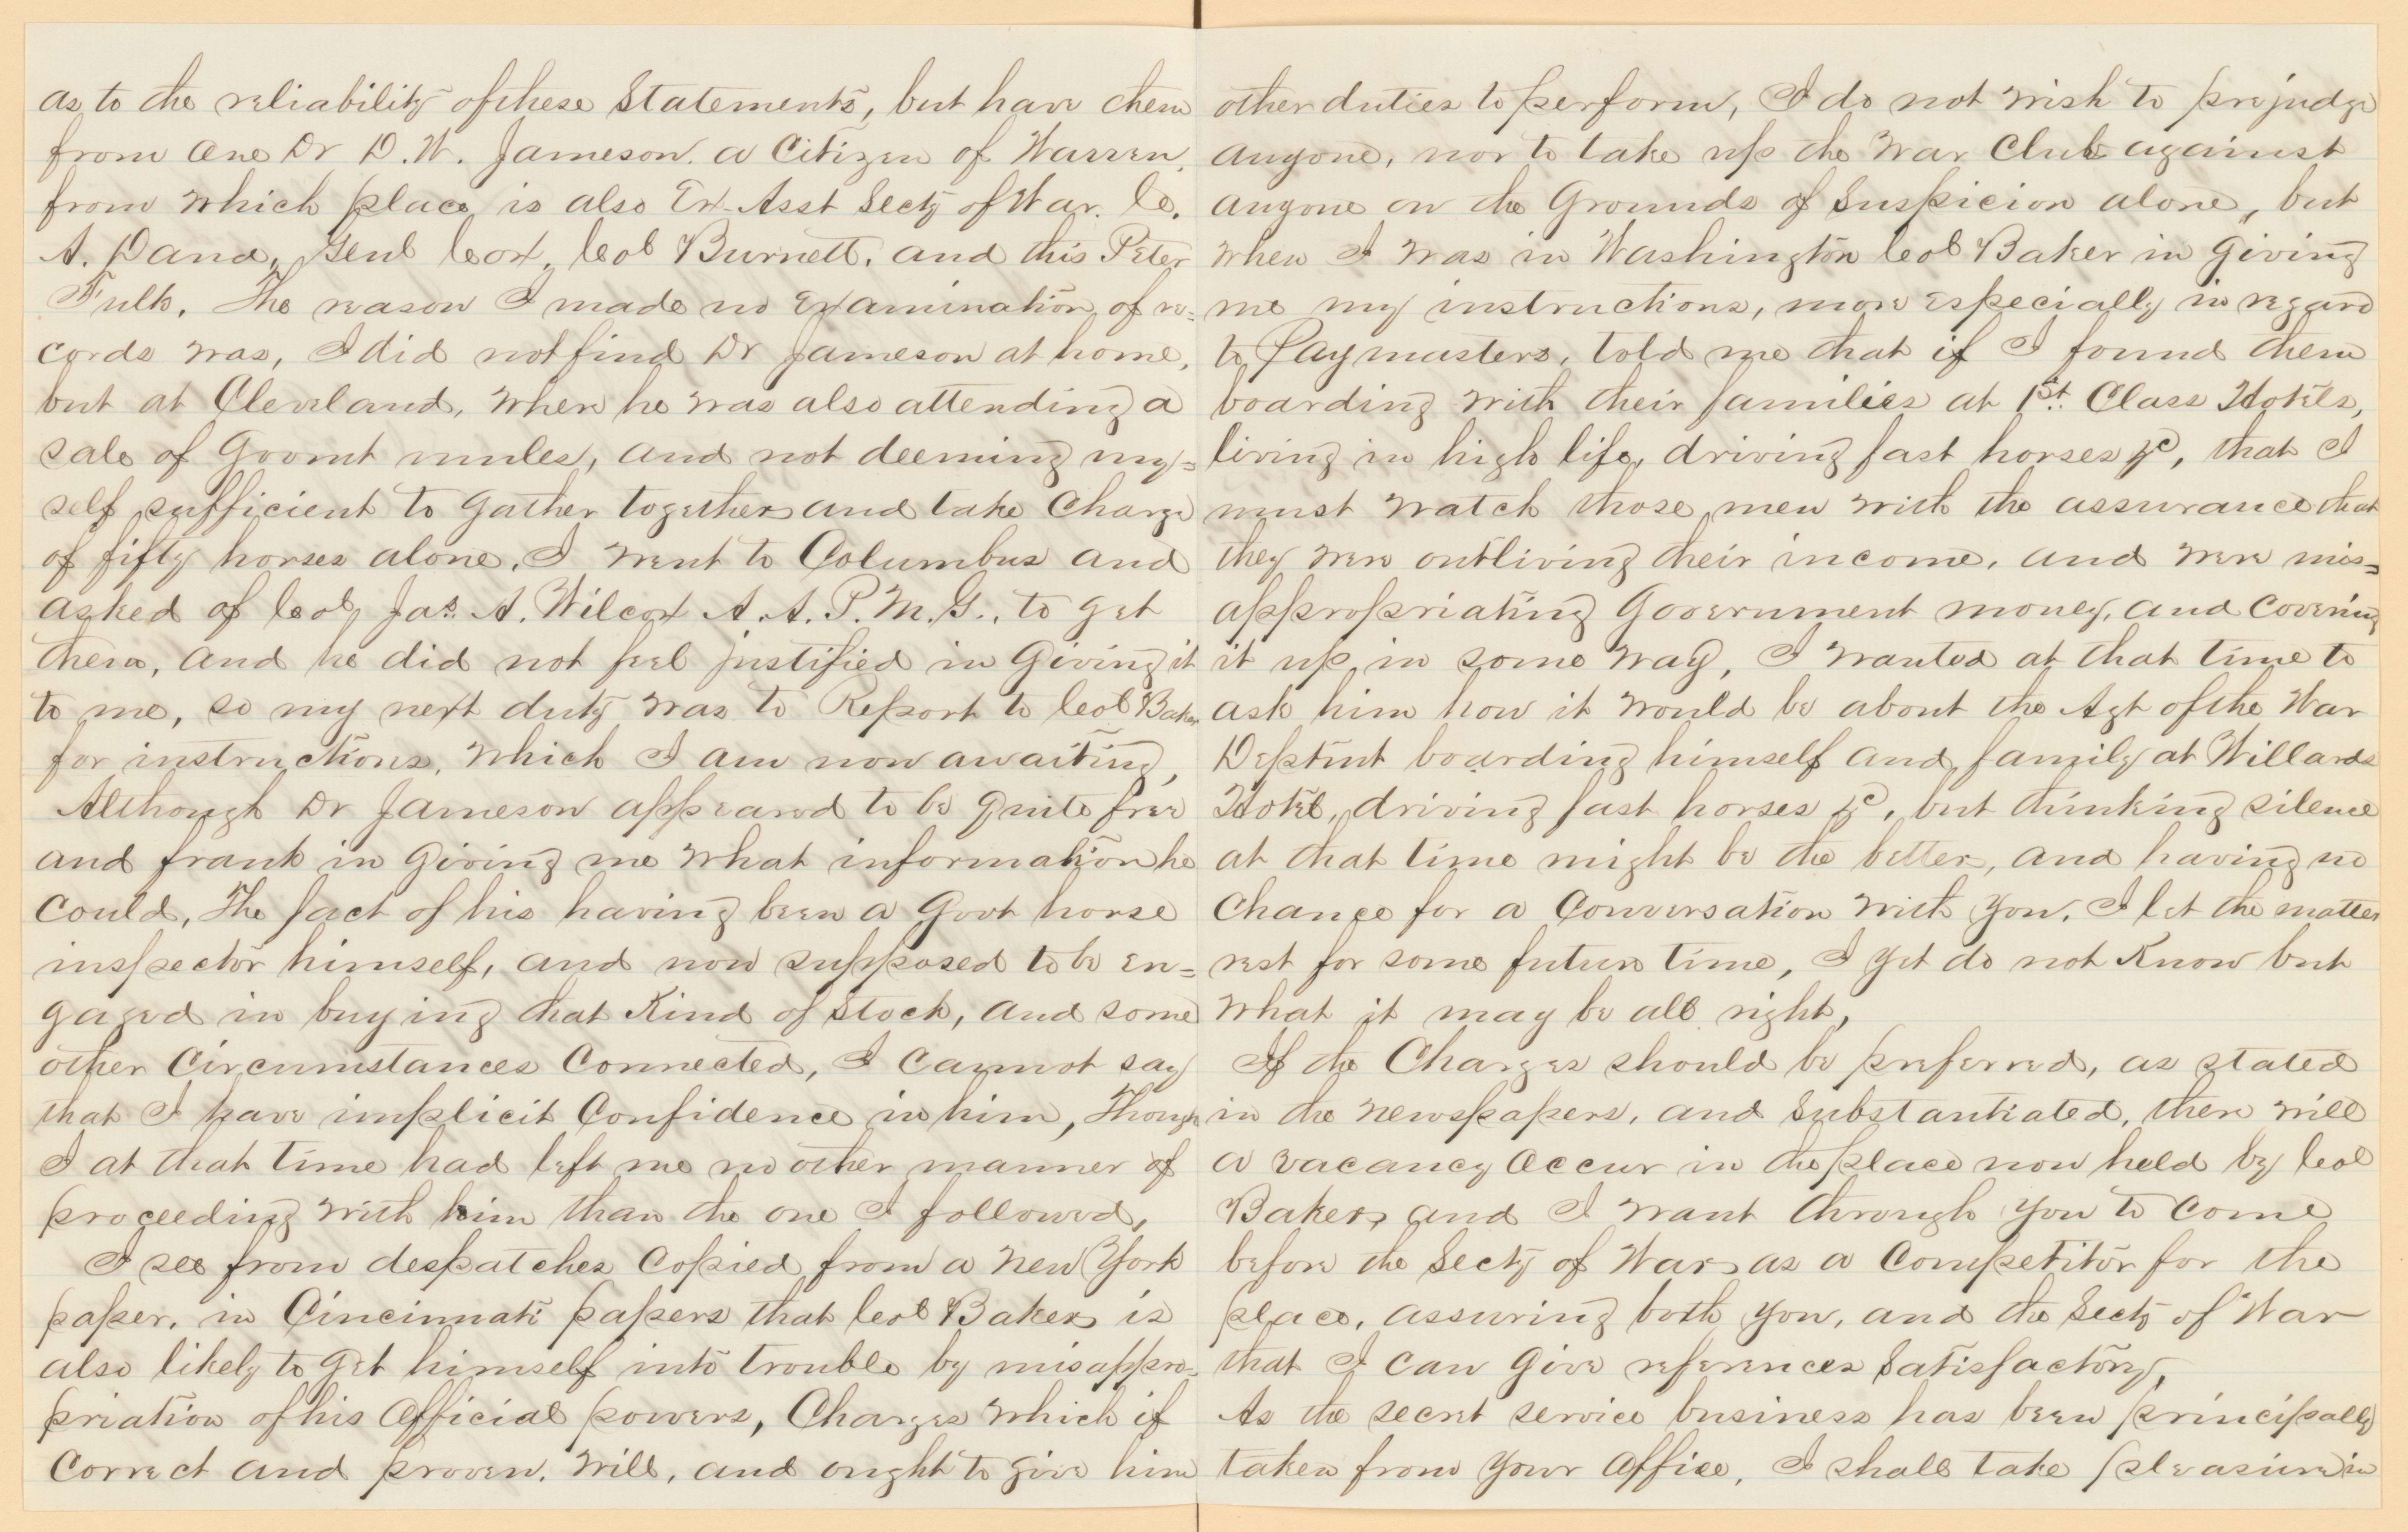 as to the reliability of these Statements, but have them
from one Dr D. W. Jameson. a Citizen of Warren,
from which place is also Ex. Asst Secty of War. C.
A. Dana, Genl Cox, Col Burnett, and this Peter
Fulk. The reason I made no Examination of re=
cords was, I did not find Dr Jameson at home,
but at Cleveland, where he was also attending a
sale of Govmt mules, and not deeming my=
self sufficient to gather together and take Charge
of fifty horses alone, I went to Columbus and
asked of Col Jas. A. Wilcox A. A. P. M. G., to get
them, and he did not feel justified in giving it
to me, so my next duty was to Report to Col Baker
for instructions, which I am now awaiting,
Although Dr Jameson appeared to be quite free
and frank in giving me what information he
could, The fact of his having been a Govt horse
inspector himself, and now supposed to be en=
gaged in buying that Kind of Stock, and some
other Circumstances Connected, I cannot say
that I have implicit Confidence in him, Though
I at that time had left me no other manner of
proceeding with him than the one I followed,
I see from despatches Copied from a New York
paper, in Cincinnati papers that Col Baker is
also likely to get himself into trouble by misappro=
priation of his Official powers, Charges which if
Correct and proven, will, and ought to give him
other duties to perform, I do not wish to prejudge
anyone, nor to take up the War Club against
anyone on the Grounds of Suspicion alone, but
when I was in Washington Col Baker in giving
me my instructions, more especially in regard
to Paymasters, told me that if I found them
boarding with their families at 1st. Class Hotels,
living in high life, driving fast horses &c, that I
must watch those men with the assurance that
they were outliving their income, and were mis=
appropriating Government money, and covering
it up in some way, I wanted at that time to
ask him how it would be about the Agt of the War
Deptmt boarding himself and family at Willards
Hotel, driving fast horses &c, but thinking silence
at that time might be the better, and having no
chance for a Conversation with you, I let the matter
rest for some future time, I yet do not Know but
what it may be all right,
If the Charges should be preferred, as stated
in the newspapers, and Substantiated, there will
a vacancy occur in the place now held by Col
Baker, and I want through you to come
before the Secty of War as a Competitor for the
place, assuring both you, and the Secty of War
that I can give references Satisfactory,
As the secret service business has been principally
taken from your Office, I shall take pleasure in